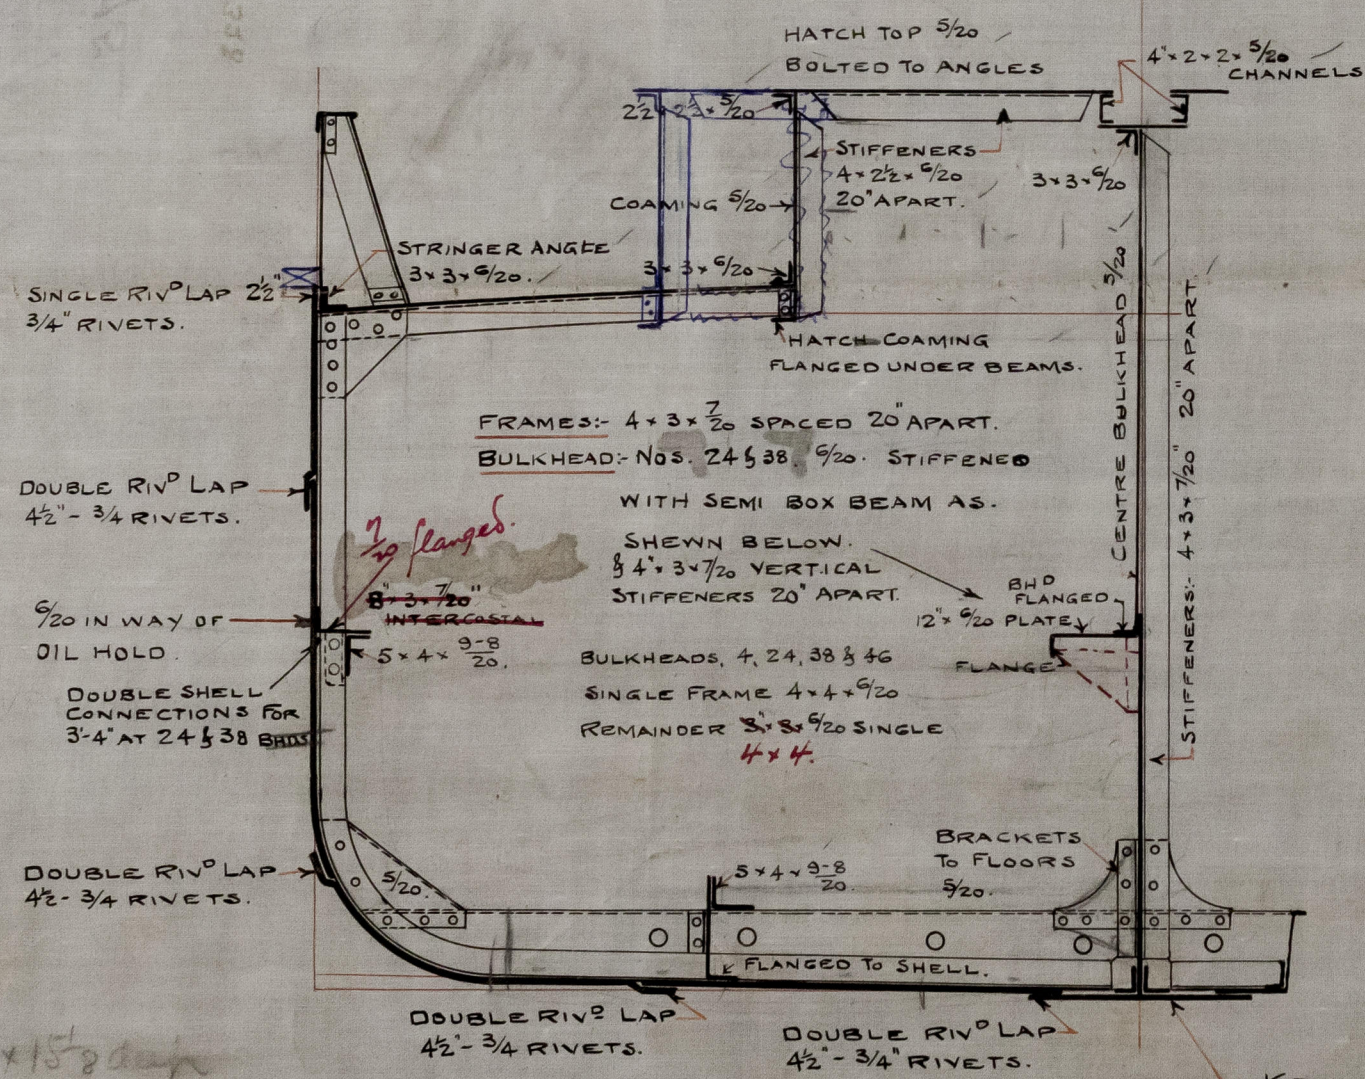 HATCH TOP 5/20
BOLTED TO ANGLES
4" × 2 × 2 × 5/20
CHANNELS
2½ × 2½ × 5/20
STIFFENERS
4 × 2½ × 6/20
20" APART.
3 × 3 × 6/20
COAMING 5/20
STRINGER ANGLE
3 × 3 × 6/20.
3 × 3 × 6/20
SINGLE RIVD LAP 2½"
3/4" RIVETS.
HATCH COAMING
FLANGED UNDER BEAMS.
CENTRE BULKHEAD 5/20
STIFFENERS:- 4 × 3 × 7/20" 20" APART.
FRAMES:- 4 × 3 × 7/20 SPACED 20" APART.
BULKHEAD:- NOS. 24 & 38. 6/20. STIFFENED
WITH SEMI BOX BEAM AS.
SHEWN BELOW.
& 4" × 3 × 7/20 VERTICAL
STIFFENERS 20" APART.
DOUBLE RIVD LAP
4½" - 3/4 RIVETS.
7/20 flanged.
8" × 3 × 7/20"
INTERCOSTAL
5 × 4 × 9-8/20.
6/20 IN WAY OF
OIL HOLD.
DOUBLE SHELL
CONNECTIONS FOR
3'-4" AT 24 & 38 BHDS
BHD
FLANGED
12" × 6/20 PLATE
FLANGE
BULKHEADS, 4, 24, 38 & 46
SINGLE FRAME 4 × 4 × 6/20
REMAINDER 3" × 3 × 6/20 SINGLE
4 × 4.
DOUBLE RIVD LAP
4½ - 3/4 RIVETS.
5/20
5 × 4 × 9-8/20
BRACKETS
TO FLOORS
5/20.
FLANGED TO SHELL.
DOUBLE RIVD LAP
4½" - 3/4 RIVETS.
DOUBLE RIVD LAP
4½" - 3/4" RIVETS.